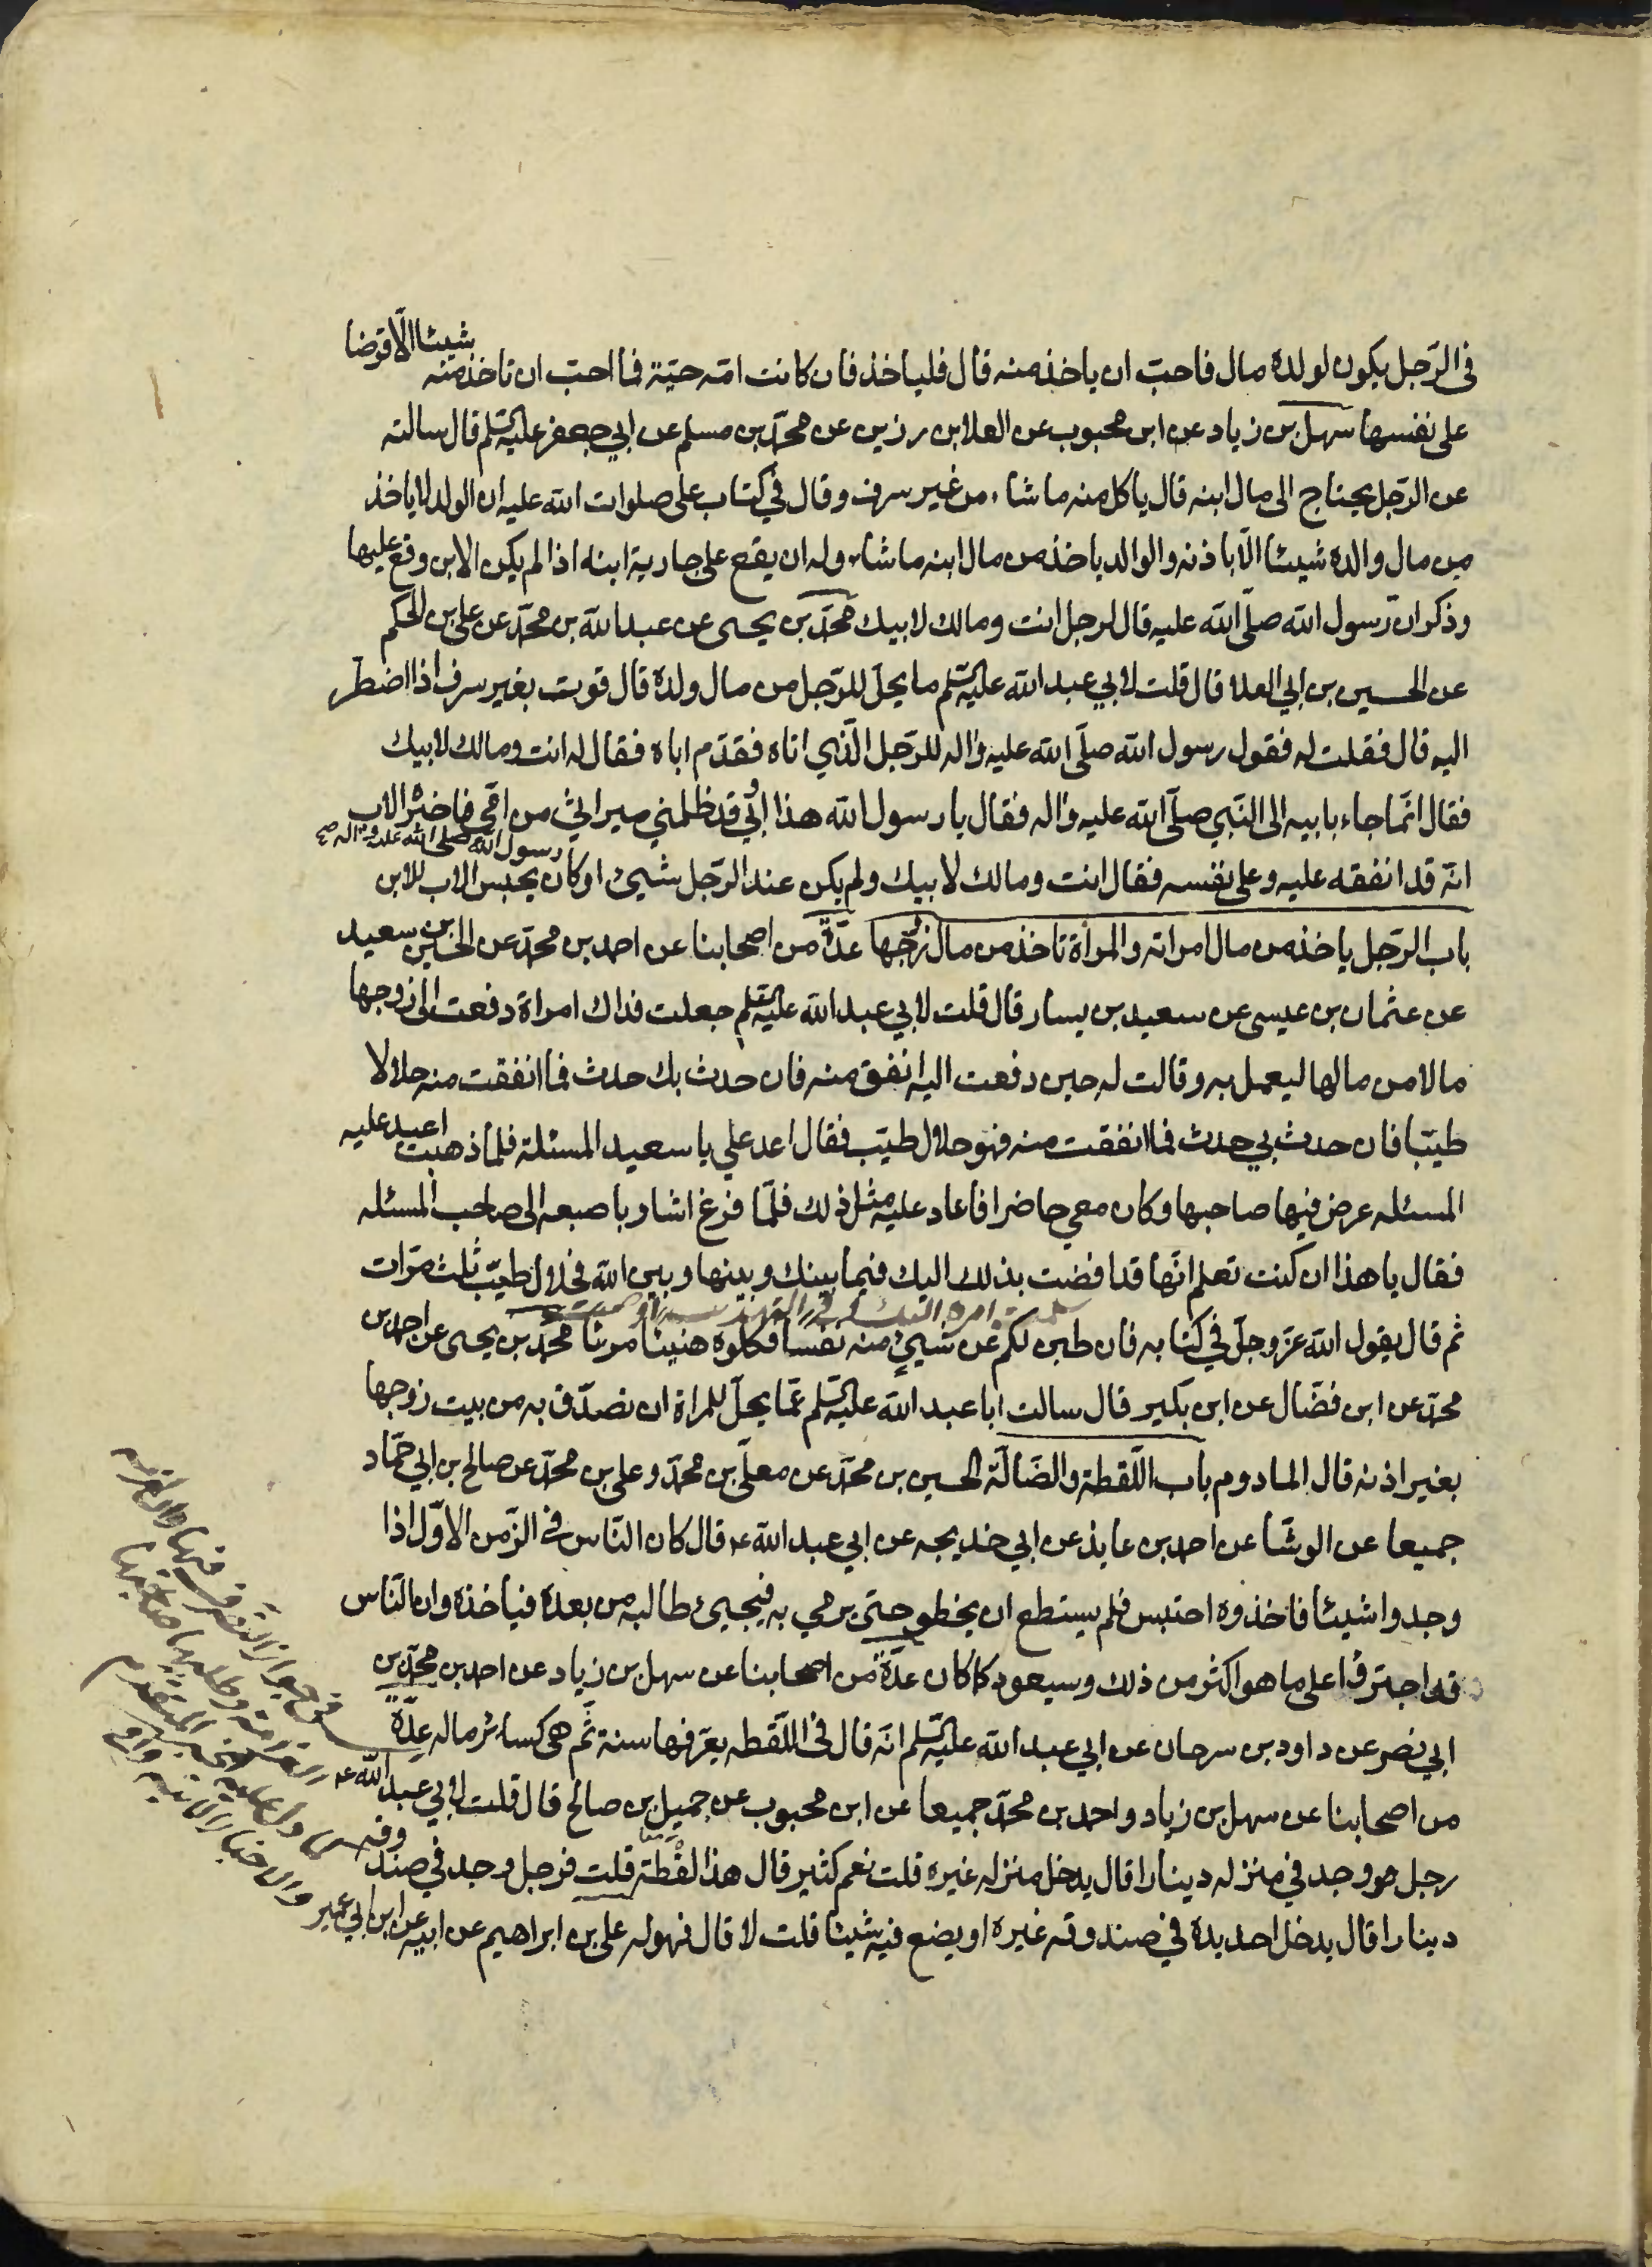 في الرّجل يكون لولده مال فاحبّ ان ياخذ منه قال فلياخذ فان كانت امّه حيّة فما احبّ ان تاخذ منه شيئا الّا قرضا
على نفسها سهل بن زياد عن ابن محبوب عن العلا بن رزين عن محمّد بن مسلم عن ابي جعفر عليه السّلم قال سالته
عن الرّجل يحتاج الى مال ابنه قال ياكل منه ما شاء من غير سرف وقال في كتاب على صلوات الله عليه ان الولد لا ياخذ
من مال والده شيئا الّا باذنه والوالد ياخذ من مال ابنه ما شاء وله ان يقع على جارية ابنه اذا لم يكن الابن وقع عليها
وذكر انّ رسول الله صلّى الله عليه قال لرجل انت ومالك لابيك محمّد بن يحيى عن عبد الله بن محمّد عن على بن الحكم
عن الحسين بن ابي العلا قال قلت لابي عبد الله عليه السّلم ما يحلّ للرّجل من مال ولده قال قوت بغير سرف اذا اضطر
اليه قال فقلت له فقول رسول الله صلّى الله عليه واله للرّجل الّذي اتاه فقدّم اباه فقال له انت ومالك لابيك
فقال انّما جاء بابيه الى النّبي صلّى الله عليه واله فقال يا رسول الله هذا ابي قد ظلمني ميراثي من امّي فاخبره الاب
انّه قد انفقه عليه وعلى نفسه فقال انت ومالك لابيك ولم يكن عند الرّجل شيئ او كان رسول الله صلى الله عليه واله يحبس الاب للابن
باب الرّجل ياخذ من مال امراته والمرأة تاخذ من مال زوجها عدّة من اصحابنا عن احمد بن محمّد عن الحسين بن سعيد
عن عثمان بن عيسى عن سعيد بن يسار قال قلت لابي عبد الله عليه السّلم جعلت فداك امراة دفعت الى زوجها
مالا من مالها ليعمل به وقالت له حين دفعت اليه انفق منه فان حدث بك حدث فما انفقت منه حلالا
طيّبا فان حدث بي حدث فما انفقت منه فهو حلال طيّب فقال اعد علي يا سعيد المسئلة فلمّا ذهبت اعيد عليه
المسئله عرض فيها صاحبها وكان معي حاضرا فاعاد عليه مثل ذلك فلمّا فرغ اشار باصبعه الى صاحب المسئله
فقال يا هذا ان كنت تعلم انّها قد افضت بذلك اليك فيما بينك وبينها وبين الله فحلال طيّب ثلث مرّات
ثم قال يقول الله عزّ وجلّ في كتابه فان طبن لكم عن شيئ منه نفسا فكلوه هنيئا مريئا محمّد بن يحيى عن احمد بن
محمّد عن ابن فضّال عن ابن بكير قال سالت ابا عبد الله عليه السّلم عمّا يحلّ للمراة ان تصدّق به من بيت زوجها
بغير اذنه قال المادوم باب اللّقطة والضّالّة الحسين بن محمّد عن معلّى بن محمّد وعلى بن محمّد عن صالح بن ابي حمّاد
جميعا عن الوشّا عن احمد بن عايذ عن ابي خديجه عن ابي عبد الله ع قال كان النّاس في الزّمن الاوّل اذا
وجدوا شيئا فاخذوه احتبس فلم يستطع ان يخطو حتى يرمي به فيجيئ طالبه من بعده فياخذه وان النّاس
قد اجترؤا على ما هو اكثر من ذلك وسيعود كما كان عدّة من اصحابنا عن سهل بن زياد عن احمد بن محمّد بن
ابي نصر عن داود بن سرحان عن ابي عبد الله عليه السّلم انّه قال في اللّقطه يعرّفها سنة ثم هى كسائر ماله عدّة
من اصحابنا عن سهل بن زياد واحمد بن محمّد جميعا عن ابن محبوب عن جميل بن صالح قال قلت لابي عبد الله ع
رجل وجد في منزله دينارا قال يدخل منزله غيره قلت نعم كثير قال هذا لقطة قلت فرجل وجد في صندوقه
دينارا قال يدخل احد يده في صندوقه غيره او يضع فيه شيئا قلت لا قال فهو له على بن ابراهيم عن ابيه عن ابن ابي عمير